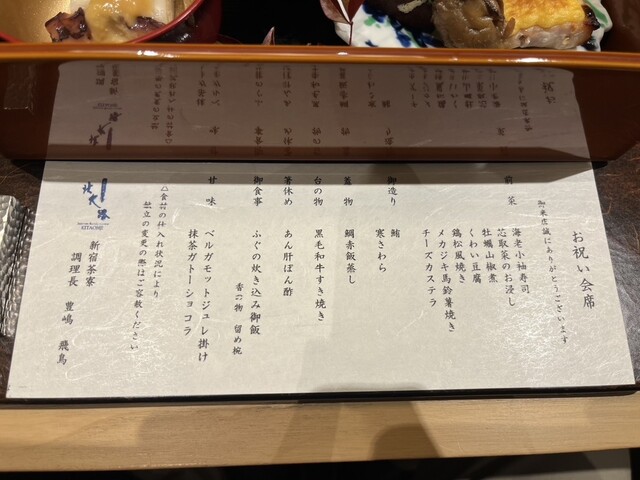 お祝い会席
御来店誠にありがとうございます
前菜
海老小袖寿司
芯取菜のお浸し
牡蠣山椒煮
くわい豆腐
鶏松風焼き
メカジキ馬鈴薯焼き
チーズカステラ
御造り
鮪
寒さわら
蓋物
鯛赤飯蒸し
台の物
黒毛和牛すき焼き
箸休め
あん肝ぽん酢
御食事
ふぐの炊き込み御飯
香の物 留め椀
甘味
ベルガモットジュレ掛け
抹茶ガトーショコラ
△食材の仕入れ状況により
献立の変更の際はご容赦ください
北大路
KITAOHJI
新宿茶寮
調理長 豊嶋 飛鳥